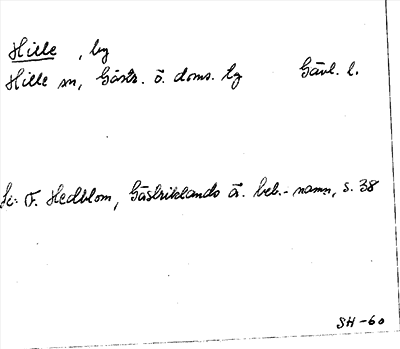 Hille, by
Hille sn, Gästr. ö. doms. lg Gävl. l.
Li: F. Hedblom, Gästriklands ä. beb.-namn, s. 38
SH-60